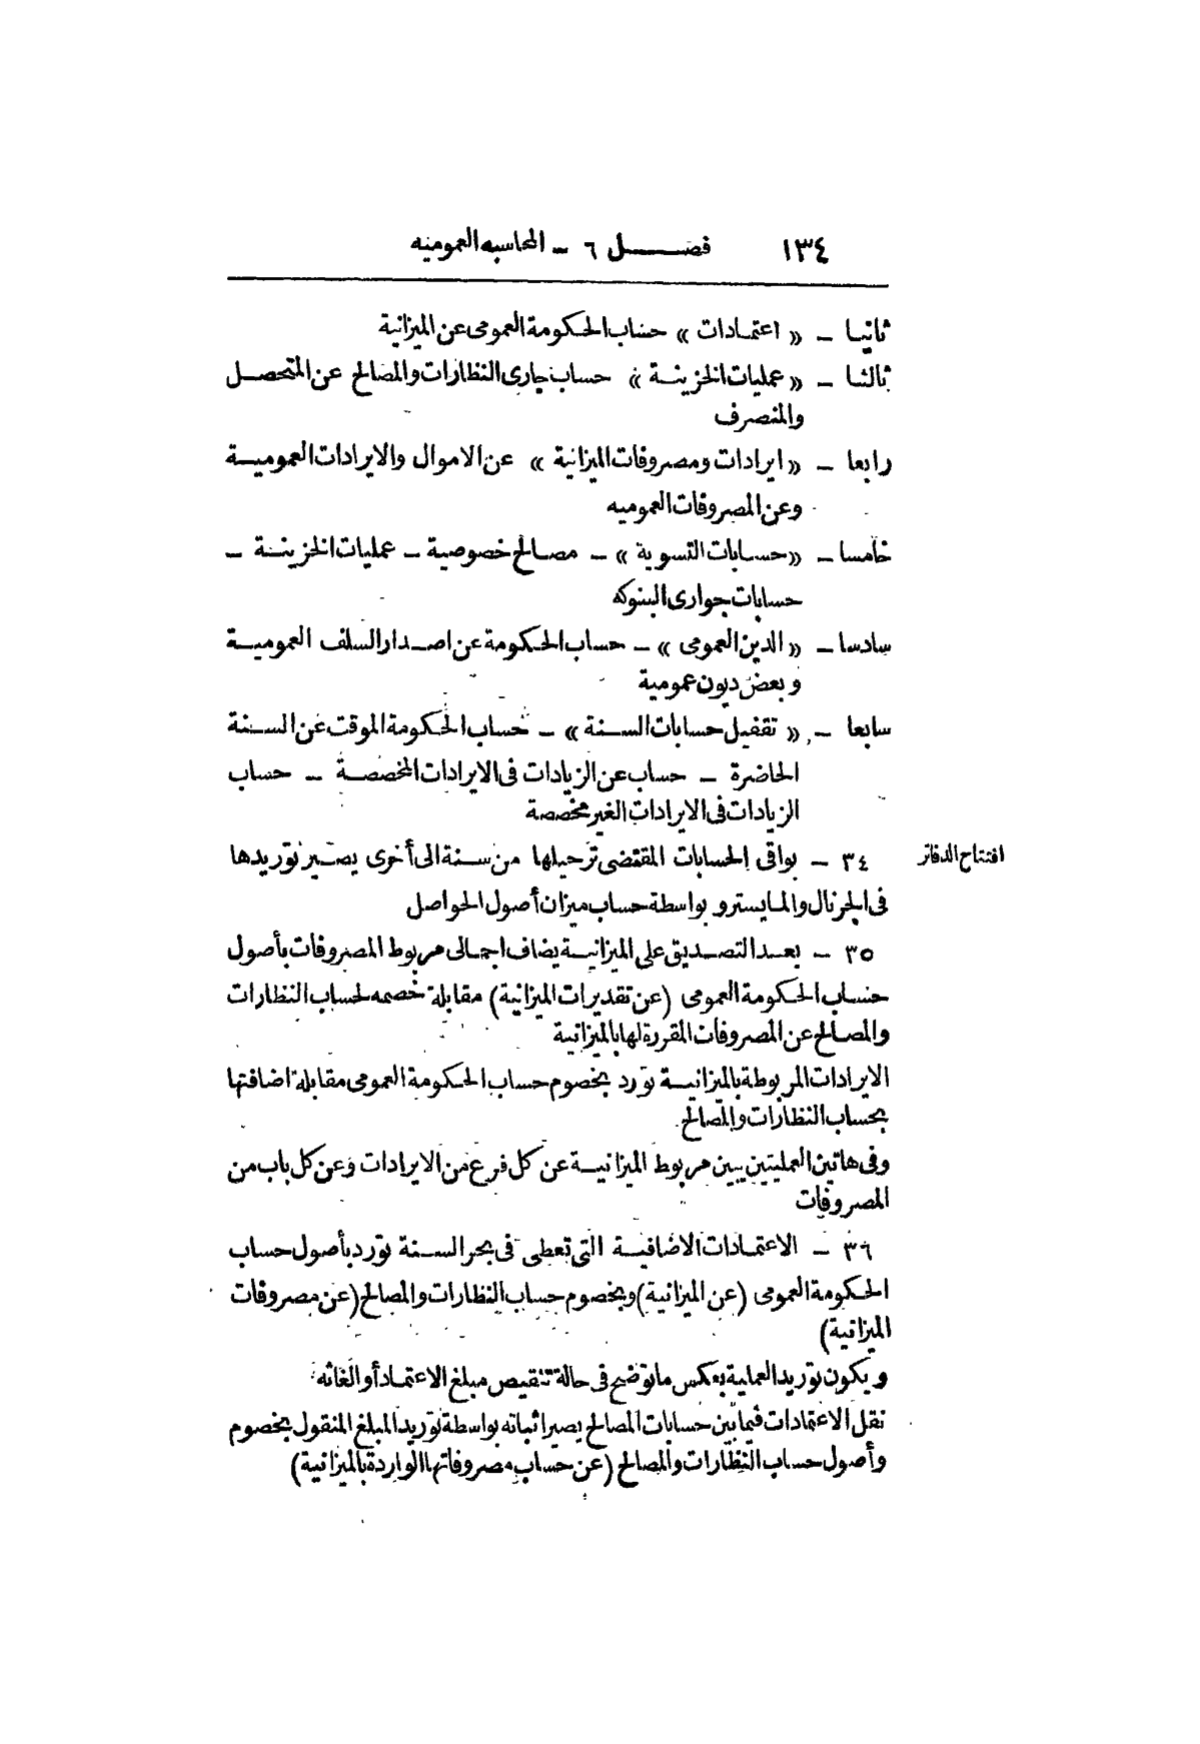 ١٣٤ فصل ٦ – المحاسبه العموميه
ثانيا – « اعتمادات » حساب الحكومة العمومى عن الميزانية
ثالثا – « عمليات الخزينة » حساب جارى النظارات والمصالح عن المتحصل
والمنصرف
رابعا – « ايرادات ومصروفات الميزانية » عن الاموال والايرادات العمومية
وعن المصروفات العموميه
خامسا – « حسابات التسوية » – مصالح خصوصية – عمليات الخزينة –
حسابات جوارى البنوكه
سادسا – « الدين العمومى » – حساب الحكومة عن اصدار السلف العمومية
وبعض ديون عمومية
سابعا – « تقفيل حسابات السنة » – حساب الحكومة الموقت عن السنة
الحاضرة – حساب عن الزيادات فى الايرادات المخصصة – حساب
الزيادات فى الايرادات الغير مخصصة
افتتاح الدفاتر
٣٤ – بواقى الحسابات المقتضى ترحيلها من سنة الى أخرى يصير توريدها
فى الجرنال والمايسترو بواسطة حساب ميزان أصول الحواصل
٣٥ – بعد التصديق على الميزانية يضاف اجمالى مربوط المصروفات بأصول
حساب الحكومة العمومى (عن تقديرات الميزانية) مقابلة خصمه لحساب النظارات
والمصالح عن المصروفات المقررة لها بالميزانية
الايرادات المربوطة بالميزانية تورد بخصوم حساب الحكومة العمومى مقابلة اضافتها
بحساب النظارات والمصالح
وفى هاتين العمليتين يبين مربوط الميزانية عن كل فرع من الايرادات وعن كل باب من
المصروفات
٣٦ – الاعتمادات الاضافية التى تعطى فى بحر السنة تورد بأصول حساب
الحكومة العمومى (عن الميزانية) وبخصوم حساب النظارات والمصالح (عن مصروفات
الميزانية)
ويكون توريد العملية بعكس ما توضح فى حالة تنقيص مبلغ الاعتماد أو الغائه
نقل الاعتمادات فيما بين حسابات المصالح يصير اثباته بواسطة توريد المبلغ المنقول بخصوم
وأصول حساب النظارات والمصالح (عن حساب مصروفاتها الواردة بالميزانية)